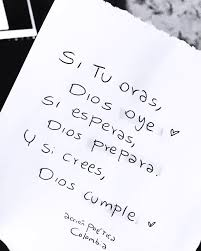 Si Tu oras,
Dios oye. ♡
Si esperas,
Dios prepara.
Y si crees,
Dios cumple. ♡
acción poética
Colombia